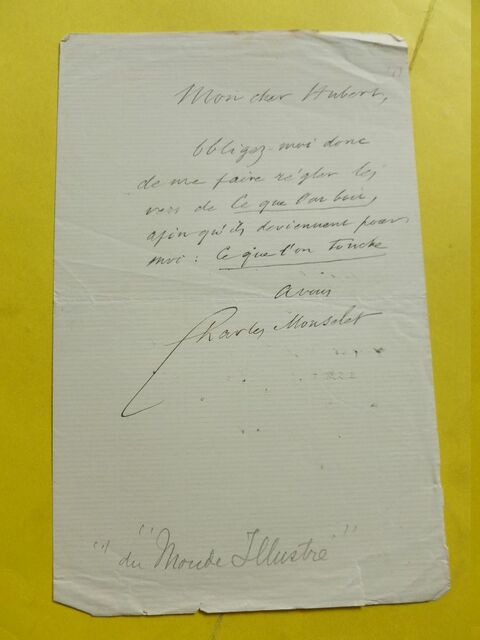 Mon cher Hubert,
Obligez-moi donc
de me faire régler les
vers de Ce que l'on boit,
afin qu'ils deviennent pour
moi : Ce que l'on touche
à vous
Charles Monselet
" du "Monde Illustré" "